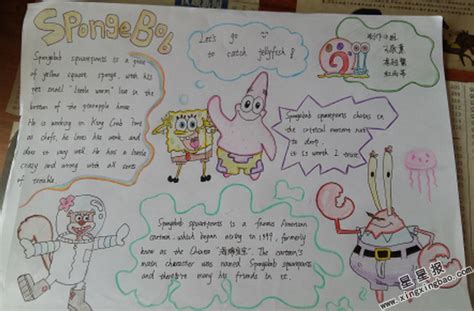 SPONGEBOB
Spongebob squarepants is a piece
of yellow square sponge, with his
pet snail "little worm" live in
the bottom of the pineapple house
He is working in King Crab Fort
as chefs, he loves his work, and
does it very well. He has a little
crazy and along with all sorts
of trouble.
Let's go
to catch jellyfish!
制作小组
Spongebob squarepants chosen in
the critical moment not
to drop.
it is worth I trust.
Spongebob squarepants is a famous American
cartoon, which began airing in 1999, formerly
know as the Chinese "海绵宝宝". The cartoon's
main character was named Spongebob squarepants
and therefore many his friends in it.
星星报
www.xingxingbao.com